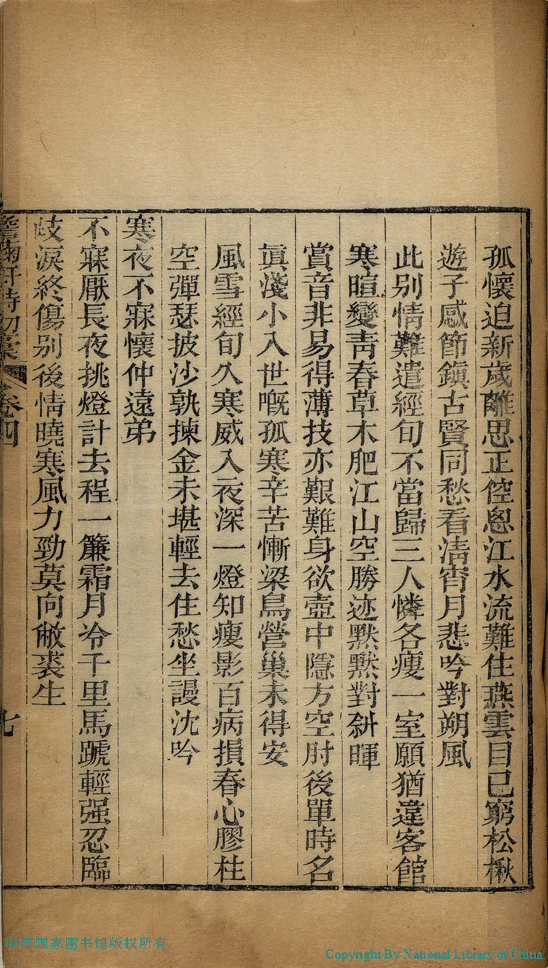 孤懷迫新歲離思正倥傯江水流難住燕雲目已窮松楸
遊子感節鎮古賢同愁看淸宵月悲吟對朔風
此別情難遣經旬不當歸三人憐各瘦一室願猶違客館
寒暄變靑春草木肥江山空勝迹黙黙對斜暉
賞音非易得薄技亦艱難身欲壺中隱方空肘後單時名
眞淺小入世嘅孤寒辛苦慚梁鳥營巢未得安
風雪經旬久寒威入夜深一燈知瘦影百病損春心膠柱
空彈瑟披沙孰揀金未堪輕去住愁坐謾沈吟
寒夜不寐懷仲遠弟
不寐厭長夜挑燈計去程一簾霜月冷千里馬蹏輕强忍臨
歧淚終傷別後情曉寒風力勁莫向敝裘生
詩初稾 卷四 七
中國國家图书馆版权所有
Copyright By National Library of China